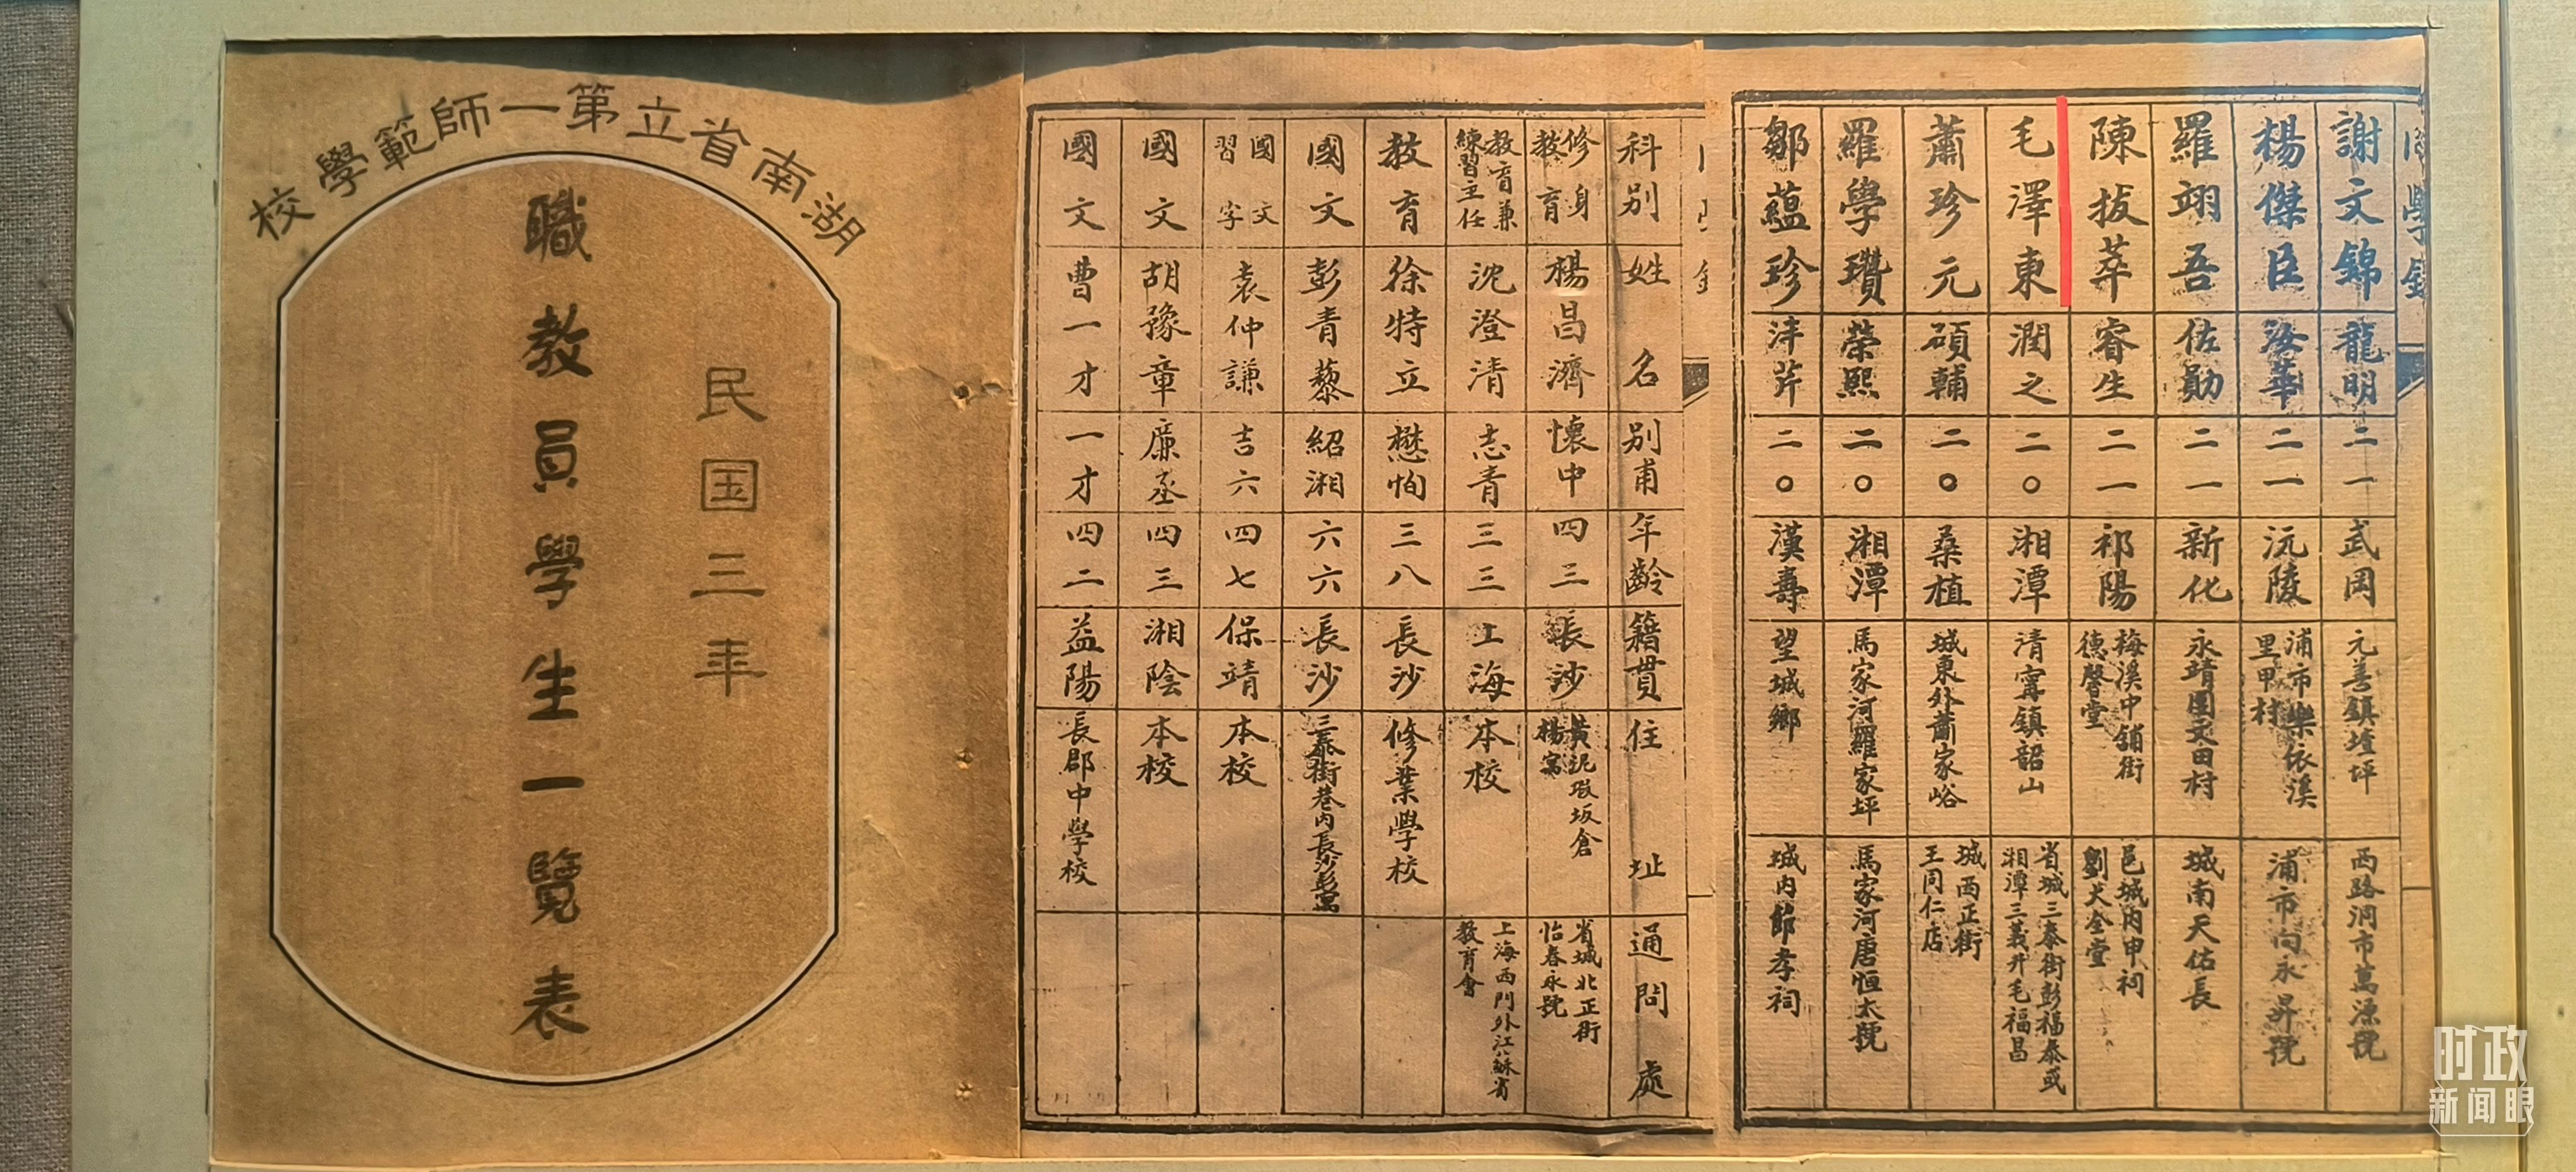 湖南省立第一師範學校
民国三年
職教員學生一覽表
科別 姓名 別甫 年齡 籍貫 住址 通問處
修身教育 楊昌濟 懷中 四三 長沙 黃泥塅坂倉楊寓 省城北正街怡春永號
教育兼練習主任 沈澄清 志青 三三 上海 本校 上海西門外江蘇省教育會
教育 徐特立 懋恂 三八 長沙 修業學校
國文 彭青藜 紹湘 六六 長沙 三泰街巷內長沙彭寓
國文習字 袁仲謙 吉六 四七 保靖 本校
國文 胡豫章 廉丞 四三 湘陰 本校
國文 曹一才 一才 四二 益陽 長郡中學校
同學錄
謝文錦 龍明 二一 武岡 元善鎮堘坪 西路洞市萬源號
楊傑臣 海華 二一 沅陵 浦市樂依溪里甲村 浦市向永昇號
羅翊吾 佐勛 二一 新化 永靖團文田村 城南天佑長
陳拔萃 睿生 二一 祁陽 梅溪中舖街德馨堂 邑城內申祠劉大全堂
毛澤東 潤之 二〇 湘潭 清寧鎮韶山 省城三泰街彭福泰或湘潭三義井毛福昌
蕭珍元 碩輔 二〇 桑植 城東外蕭家峪 城西正街王同仁店
羅學瓚 榮熙 二〇 湘潭 馬家河羅家坪 馬家河唐恒太號
鄒蘊珍 泮芹 二〇 漢壽 望城鄉 城內節孝祠
时政
新闻眼